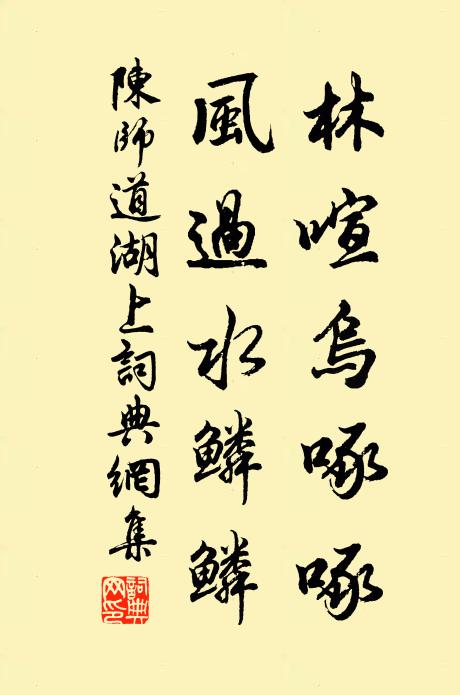 林喧烏啄啄
風過水鱗鱗
陳師道湖上詞典網集
詞典網印